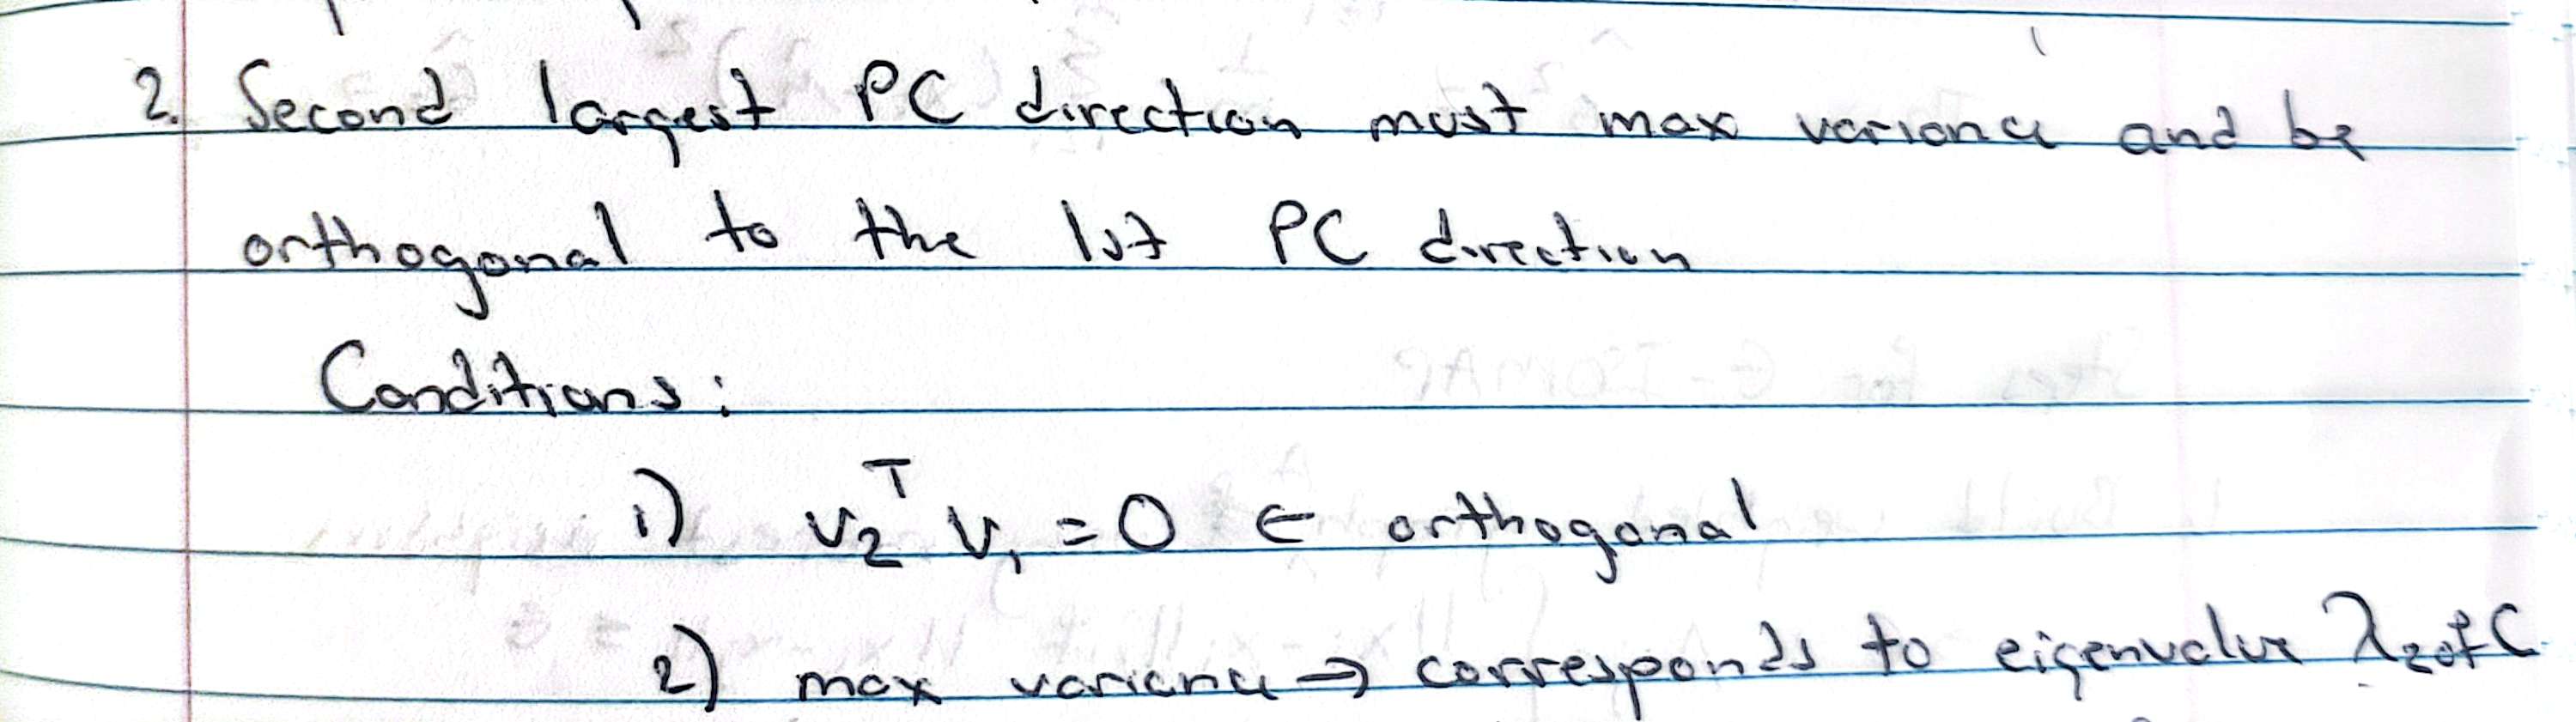 2. Second largest PC direction must max variance and be
orthogonal to the 1st PC direction
Conditions:
1) v₂ᵀ v₁ = 0 ← orthogonal
2) max variance → corresponds to eigenvalue λ₂ of C